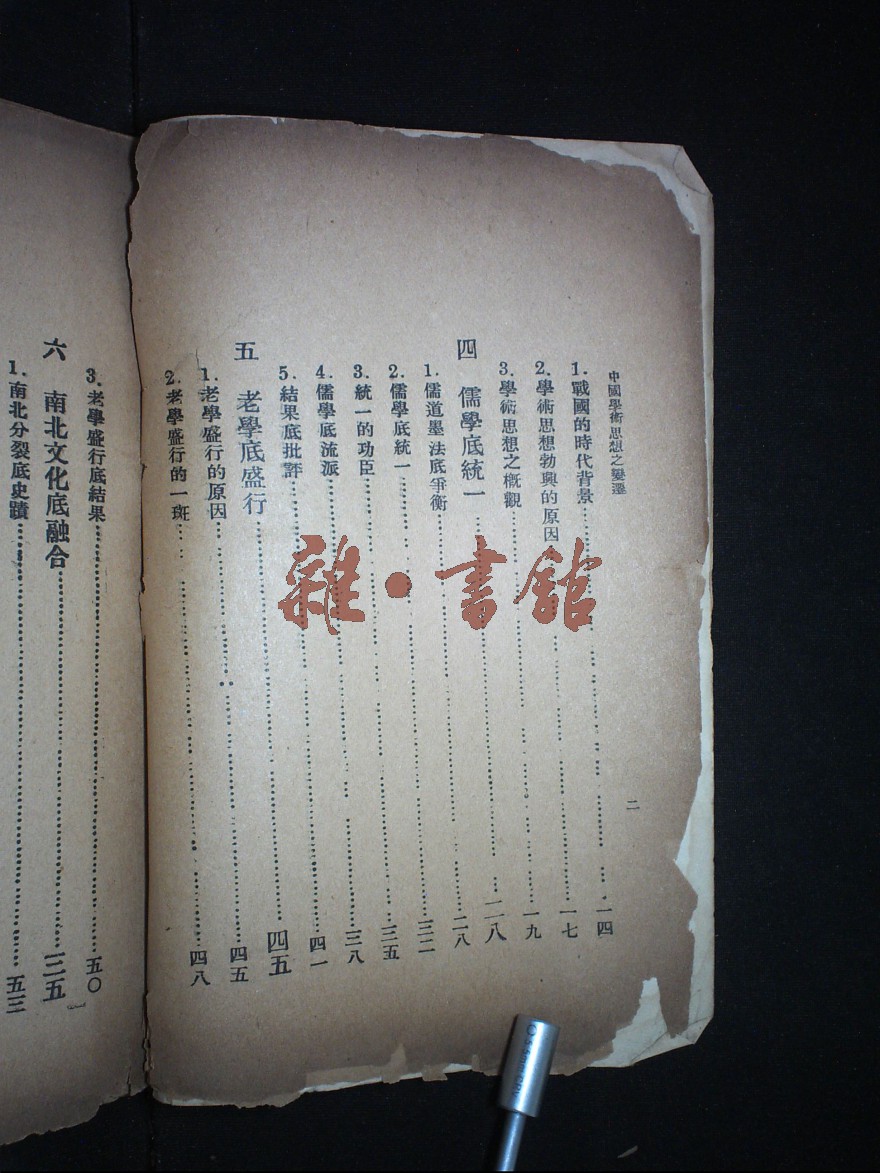 中國學術思想之變遷
二
1. 戰國的時代背景 一四
2. 學術思想勃興的原因 一七
3. 學術思想之概觀 一九
四 儒學底統一 二八
1. 儒道墨法底爭衡 二八
2. 儒學底統一 三二
3. 統一的功臣 三五
4. 儒學底流派 三八
5. 結果底批評 四一
五 老學底盛行 四五
1. 老學盛行的原因 四五
2. 老學盛行的一斑 四八
3. 老學盛行底結果 五〇
六 南北文化底融合 三五
1. 南北分裂底史蹟 五三
雜·書館